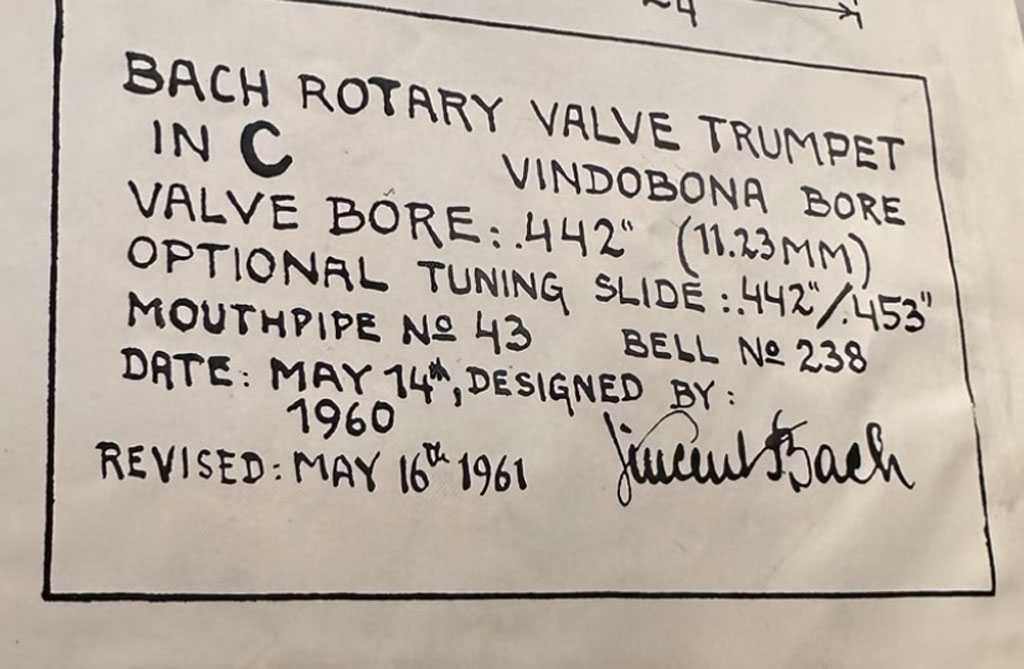 24
BACH ROTARY VALVE TRUMPET
IN C VINDOBONA BORE
VALVE BORE: .442" (11.23MM)
OPTIONAL TUNING SLIDE: .442"/.453"
MOUTHPIPE Nº 43 BELL Nº 238
DATE: MAY 14th, DESIGNED BY:
1960
REVISED: MAY 16th 1961 Vincent Bach